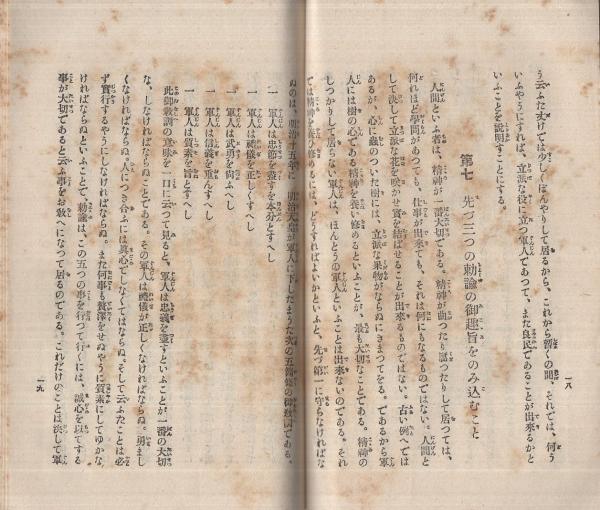 う云ふた丈けでは少しくぼんやりして居るから、これから暫くの間、それでは、何う
いふやうにすれば、立派な役に立つ軍人であつて、また良民であることが出來るかと
いふことを說明すことにする。
第七 先づ三つの勅諭の御趣旨をのみ込むこと
人間といふ者は、精神が一番大切である。精神が曲つたり歪つたりして居つては、
何れほど學問があつても、仕事が出來ても、それは何にもなるものではない。人間と
して決して立派な花を咲かせ實を結ばせることが出來るものではない。古い例へでは
あるが、心に蟲のついた樹には、立派な果物がならぬにきまつてをる。であるから軍
人には樹の心である精神を養い修めるといふことが、最も大切なことである。精神の
しつかりして居らない軍人は、ほんとうの軍人といふことは出來ないのである。それ
では精神を養ひ修めるには、どうすればよいかといふと、先づ第一に守らなければな
一八
ぬのは、明治十五年に 明治天皇が軍人に下したまふた次の五箇條の御敎訓である。
一 軍人は忠節を盡すを本分とすへし
一 軍人は禮儀を正しくすへし
一 軍人は武勇を尙ふへし
一 軍人は信義を重んすへし
一 軍人は質素を旨とすへし
此御敎訓の意味を一口に云つて見ると、軍人は忠義を盡すといふことが一番の大切
な、しなければならぬことである。その軍人は禮儀が正しくなければならぬ。勇まし
くなければならぬ。人につき合ふには眞心でしなくてはならぬ。そして云ふたことは必
ず實行するやうにしなければならぬ。また何事も贅澤をせぬやうに質素にしてゆかな
ければならぬといふことで、勅諭は、この五つの事を行つて行くには、誠心を以てする
事が大切であると云ふ事をお敎へになつて居るのである。これだけのことは決して軍
一九